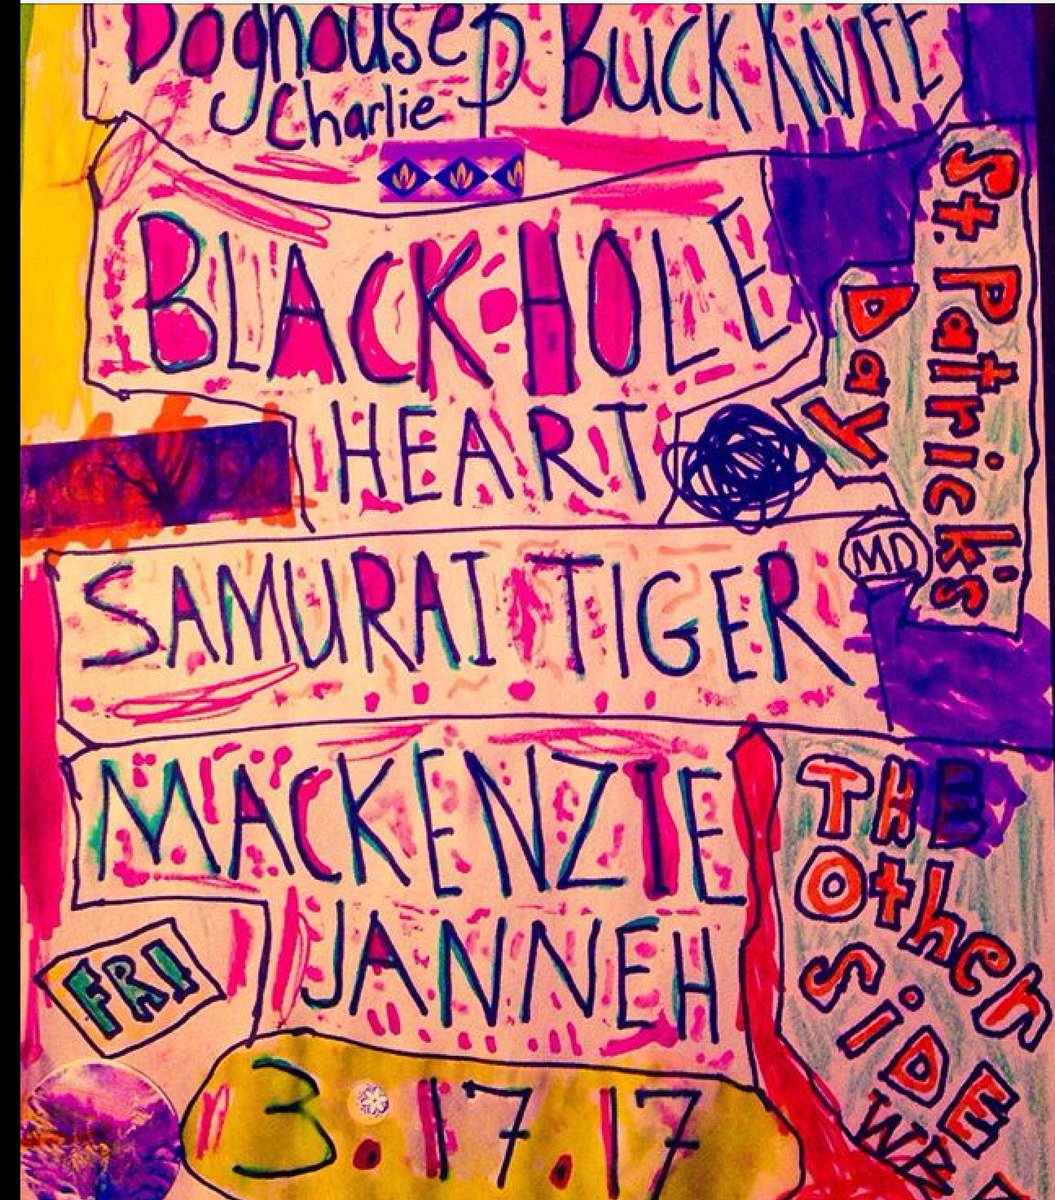 Doghouse
Charlie
Buck KNiFE
BLACK HOLE
HEART
St. Patrick's
Day
MD
SAMURAI TIGER
MACKENZIE
JANNEH
THE
Other
SiDE
FRI
3.17.17